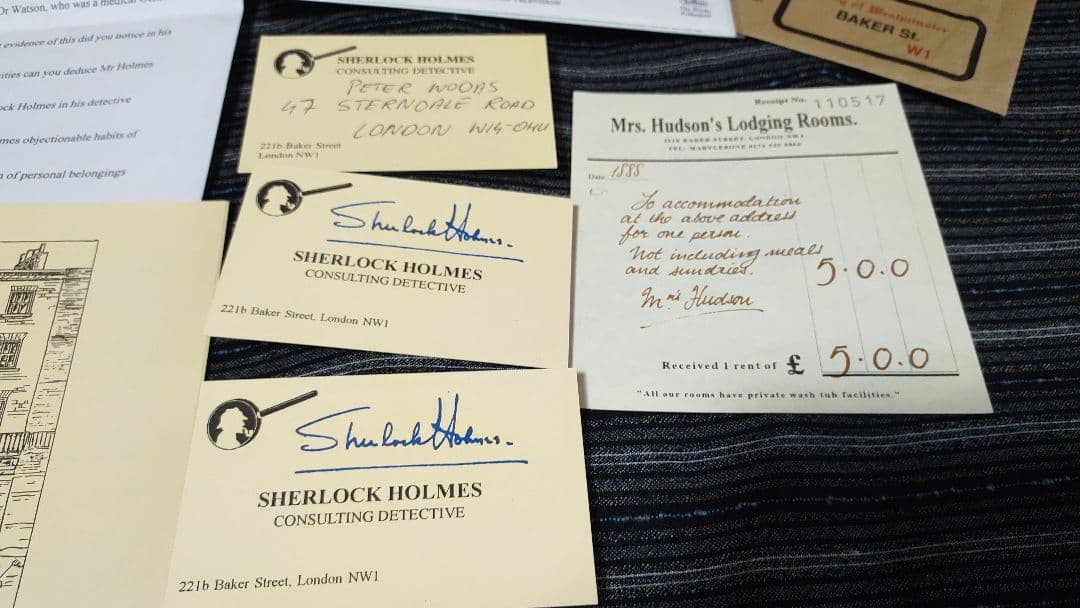 Dr Watson, who was a medical
evidence of this did you notice in his
can you deduce Mr Holmes
Holmes in his detective
objectionable habits of
of personal belongings
SHERLOCK HOLMES
CONSULTING DETECTIVE
PETER WOODS
47 STERNDALE ROAD
LONDON W14-0HU
221b Baker Street
London NW1
Sherlock Holmes.
SHERLOCK HOLMES
CONSULTING DETECTIVE
221b Baker Street, London NW1
Sherlock Holmes.
SHERLOCK HOLMES
CONSULTING DETECTIVE
221b Baker Street, London NW1
of Westminster
BAKER St.
W1
Receipt No. 110517
Mrs. Hudson's Lodging Rooms.
221B BAKER STREET, LONDON NW1
TEL: MARYLEBONE
Date 1888
To accommodation
at the above address
for one person.
Not including meals
and sundries.
5.0.0
Mrs Hudson
Received 1 rent of £ 5.0.0
"All our rooms have private wash tub facilities."